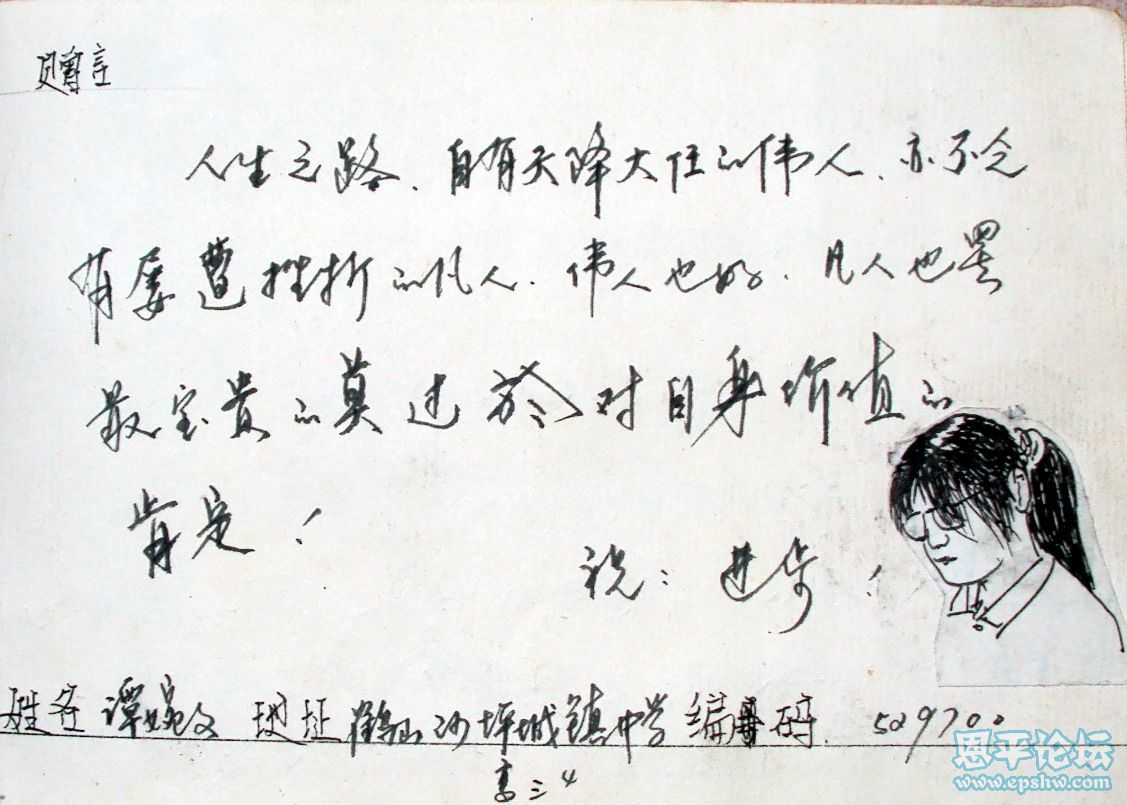 赠言
人生之路、自有天降大任的伟人、亦不乏
有屡遭挫折的凡人、伟人也好、凡人也罢
最宝贵的莫过於对自身价值的
肯定！
祝：进步！
姓名 谭婉文 地址 鹤山沙坪城镇中学 码 529700
高三4
恩平论坛
www.epshw.com